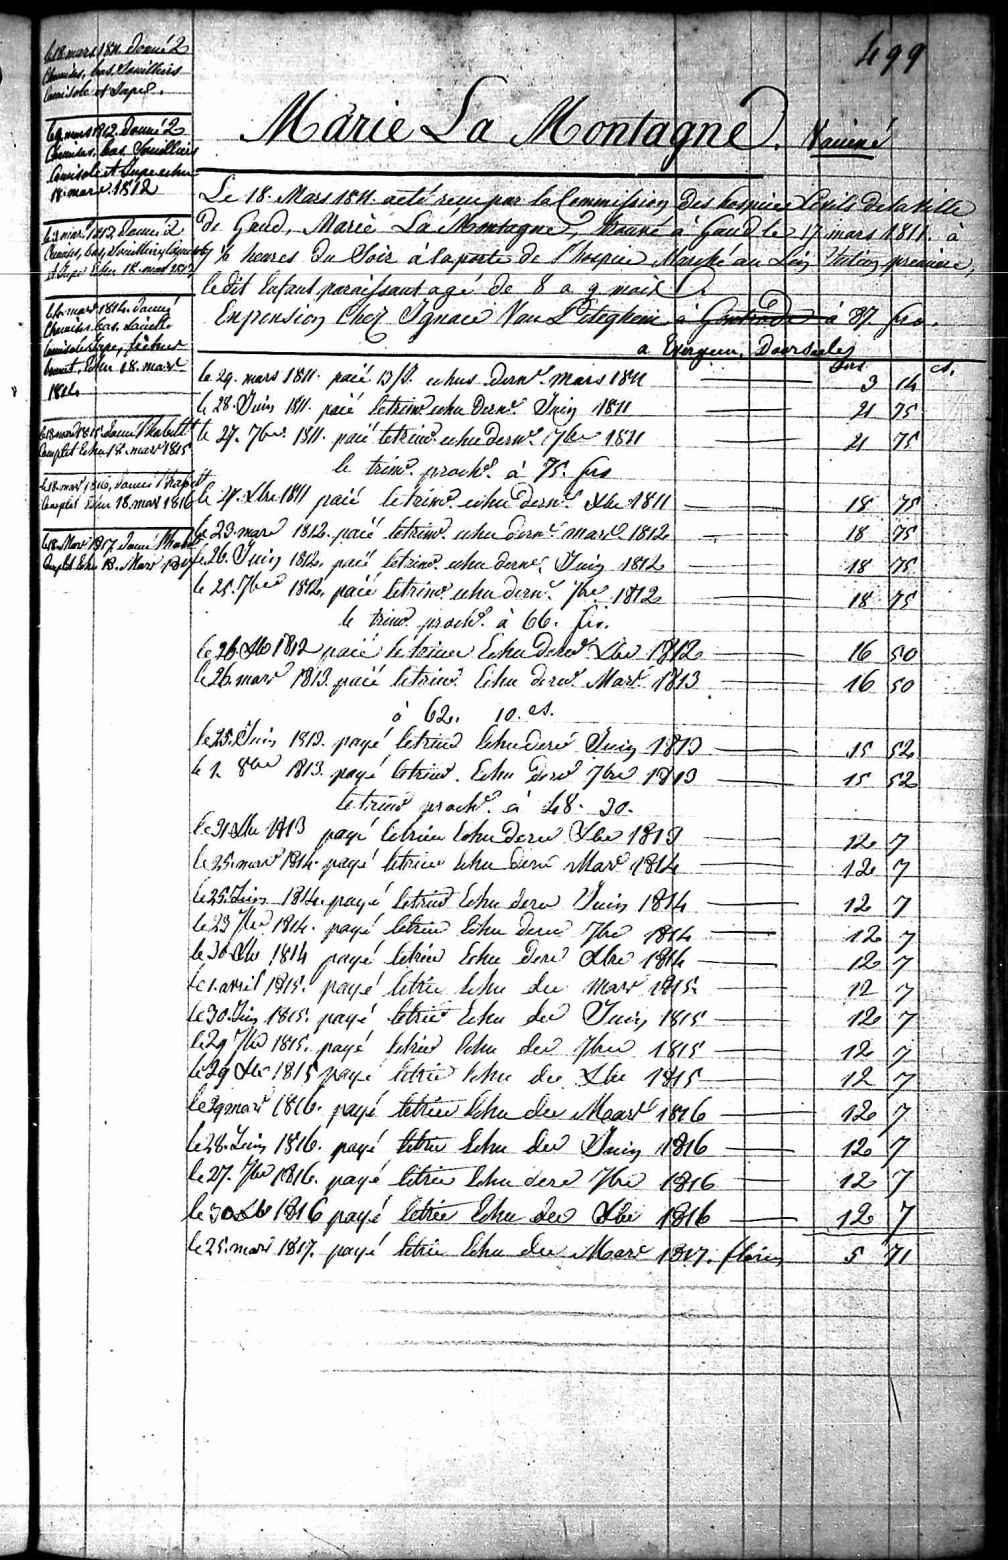 499
Marie La Montagne. Vacciné
Le 18 Mars 1811. a été reçu par la Commission des hospices Civils de la Ville
de Gand, Marie La Montagne, trouvé à Gand le 17 mars 1811. à
heures du Soir à la porte de l'hospice Marché au Lin, Section premiere,
le dit Enfant paraissant agé de 8 a 9 mois.
En pension Chez Ignace Van Peteghem à à 87. frs.
a Evergem, Doorseele
frs. cs.
le 18 mars 1811. donné 2
Chemises, bas, Souilliers
Camisole et Jupe.
le 9 mars 1812. Donné 2
Chemises, bas, Souilliers
Camisole et Jupe echu
18. mars 1812
Donné 2
Chemises, bas, Souilliers, Camisole
et Jupe Echu 18. mars 1813
mars 1814. Donné
Chemises, bas,
Camisole, Jupe, fichu
bonnet, Echu 18. mars
1814
le 18 mars 1815. Donné l'habill
Complet Echu 18. mars 1815
le 18 mars 1816, Donné l'habill
Complet Echu 18. mars 1816
le 18. Mars 1817. Donné l'habil
Complet Echu 18. Mars 1817
le 29. mars 1811. paié 13 J. echus dern. mars 1811 3 14
le 28. Juin 1811. paié le trim. echu dern. Juin 1811 21 75
le 27. 7bre. 1811. paié le trim. echu dern. 7bre 1811 21 75
le trim. proch. à 75. frs
le 27. Xbre 1811 paié le trim. echu dern. Xbre 1811 18 75
le 23. mars 1812. paié le trim. echu dern. mars 1812 18 75
le 26. Juin 1812. paié le trim. echu dern. Juin 1812 18 75
le 25. 7bre 1812. paié le trim. echu dern. 7bre 1812 18 75
le trim. proch. à 66. frs.
le 26 Xb 1812 paié le trimer Echu dern. Xbre 1812 16 50
le 26. mars 1813. paié le trim. Echu dern. Mars 1813 16 50
à 62. 10. cs.
le 25. Juin 1813. payé le trim Echu dern Juin 1813 15 52
le 1. 8bre 1813. payé le trim. Echu dern 7bre 1813 15 52
le trim proch. à 48. 30.
le 31 Xbre 1813 payé le trim Echu dern Xbre 1813 12 7
le 25. mars 1814. payé le trim Echu dern Mars 1814 12 7
le 25. Juin 1814. payé le trim Echu dern Juin 1814 12 7
le 23 7bre 1814. payé le trim Echu dern 7bre 1814 12 7
le 30 Xbre 1814 payé le trim Echu dern Xbre 1814 12 7
le 1. avril 1815. payé le trim Echu der mars 1815. 12 7
le 30. Juin 1815. payé le trim Echu der Juin 1815 12 7
le 29 7bre 1815. payé le trim Echu der 7bre 1815 12 7
le 29 Xbre 1815 payé le trim Echu der Xbre 1815 12 7
le 29 mars 1816. payé le trim Echu der Mars 1816 12 7
le 28. Juin 1816. payé le trim Echu der Juin 1816 12 7
le 27. 7bre 1816. payé le trim Echu dern 7bre 1816 12 7
le 30 Xb 1816 payé le trim Echu der Xbre 1816 12 7
le 25. mars 1817. payé le trim Echu der Mars 1817. florins 5 71